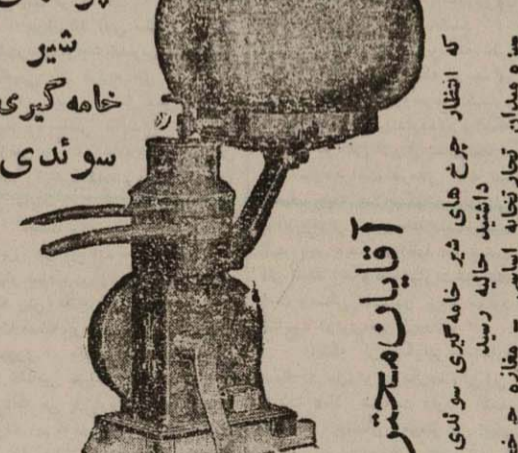 شیر
خامه گیری
سوئدی
آقایان محتر
که انتظار چرخ های شیر خامه گیری سوئدی
داشتید حالیه رسید
میدان تجارتخانه اساسی - مغازه